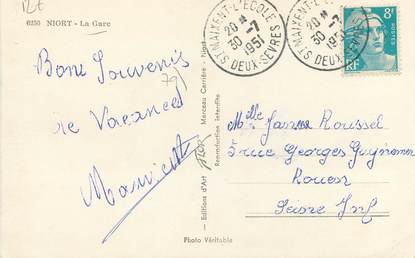 12€
6250 NIORT - La Gare
Bons Souvenirs
79
de Vacances
ST MAIXENT-L'ECOLE
20 H
30-7
1951
DEUX-SEVRES
ST MAIXENT-L'ECOLE
20 H
30-7
1951
DEUX-SEVRES
8F
POSTES
RF
Editions d'Art Marceau Carrière - Niort
Reproduction Interdite
Mlle Jeanne Roussel
rue Georges
Rouen
Seine Inf
Photo Véritable